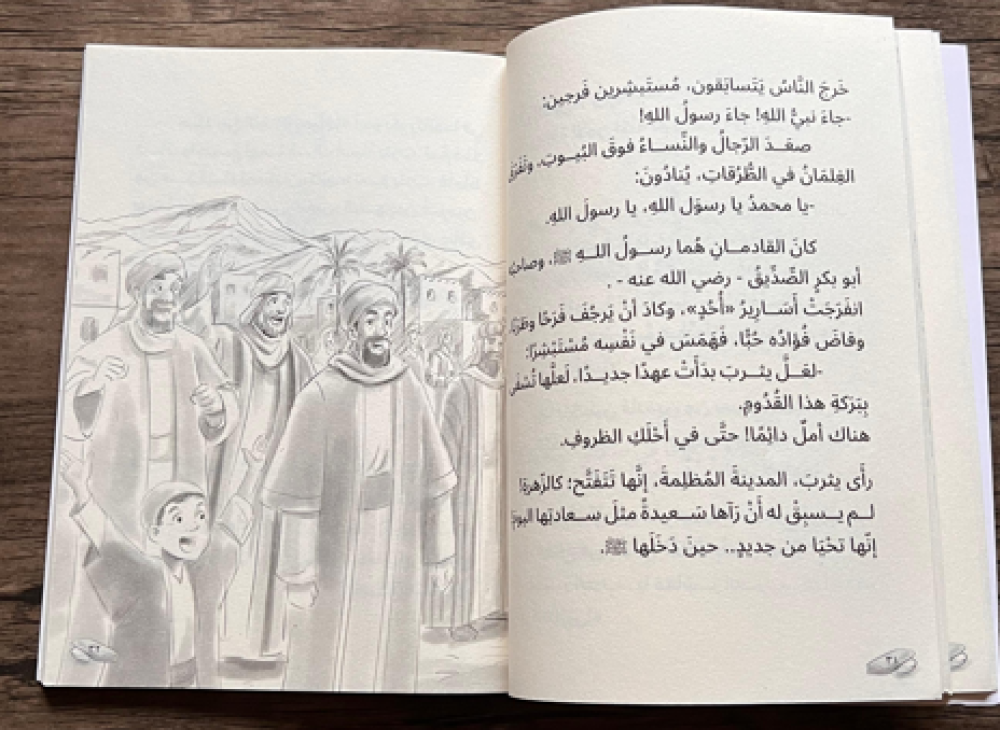 خَرجَ النَّاسُ يَتَسابَقون، مُستَبشِرين فَرحِين:
-جاءَ نبيُّ اللهِ! جاءَ رسولُ اللهِ!
صعَـدَ الرّجالُ والنِّسـاءُ فوقَ البُيـوتِ، وتَفَرَّقَ
الغِلمَانُ في الطُّرُقاتِ، يُنادُونَ:
-يا محمدُ يا رسوَل اللهِ، يا رسولَ اللهِ.
كانَ القادمـانِ هُما رسـولُ اللـهِ ﷺ، وصاحبُه
أبو بكرٍ الصِّدِّيقُ - رضي الله عنه - .
انفَرَجَتْ أَسَـارِيرُ «أُحُدٍ»، وكادَ أنْ يَرجُفَ فَرَحًا وطَرَبًا
وفاضَ فُؤادُه حُبًّا، فَهَمَسَ في نَفْسِه مُسْتَبْشِرًا:
-لعَلَّ يثـربَ بدَأَتْ عهدًا جديـدًا، لَعلَّها تُشفَى
بِبَركةِ هذا القُدُومِ.
هناك أملٌ دائِمًا! حتَّى في أَحْلَكِ الظروفِ.
رأَى يثربَ، المدينةَ المُظلِمةَ، إنَّها تَتَفَتَّح؛ كالزّهرةِ!
لـم يـسبِقْ له أنْ رَآها سَـعيدةً مثلَ سـعادتِها اليومَ
إنّها تحْيَا من جديدٍ.. حينَ دَخَلَها ﷺ.